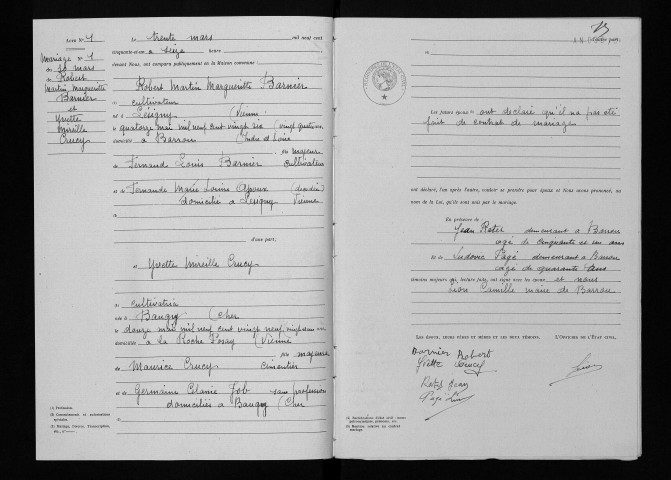 Acte N° 1
Mariage N° 1
du 30 mars
de Robert
Martin Margueritte
Barnier
et
Yvette
Mireille
Crucy
Le trente mars mil neuf cent
cinquante-et-un à seize heure
devant Nous, ont comparu publiquement en la Maison commune :
Robert Martin Margueritte Barnier
(1) cultivateur
né à Lésigny (Vienne)
le quatorze mai mil neuf cent vingt six (vingt quatre ans
domicilié à Barrou (Indre et Loire
fils majeur
de Fernand Louis Barnier cultivateur
et de Fernande Marie Louise (décédée)
domiciliés à Lésigny Vienne
d'une part,
et Yvette Mireille Crucy
(1) cultivatrice
née à Baugy (Cher
le douze mai mil neuf cent vingt neuf
domiciliée à la Roche Posay (Vienne
fille majeure
de Maurice Crucy cimentier
et de Germaine Job sans profession
domiciliés à Baugy (Cher
(1) Profession.
Les futurs époux ont déclaré qu'il n'a pas été
fait de contrat de mariage
ont déclaré, l'un après l'autre, vouloir se prendre pour époux et Nous avons prononcé, au
nom de la Loi, qu'ils sont unis par le mariage.
En présence de :
Jean Retif demeurant à Barrou
agé de cinquante et un ans
et de Ludovic Pagé demeurant à Barrou
age de quarante ans
témoins majeurs qui, lecture faite, ont signé avec les époux et nous
Camille maire de Barrou
Les époux, leurs pères et mères et les dits témoins,
L'Officier de l'État civil,
Barnier Robert
Yvette Crucy
Retif Jean
Pagé